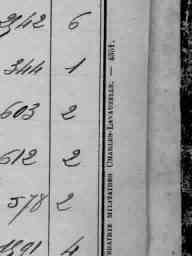 2142 6
344 1
603 2
612 2
578 2
4
BRAIRIE MILITAIRES CHARLES-LAVAUZELLE. — 4551.